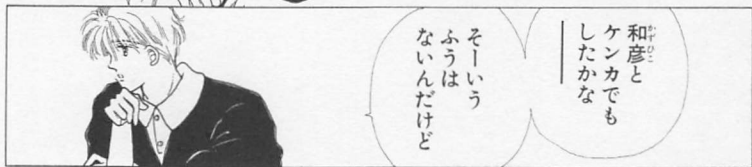 和彦と
ケンカでも
したかな――
そーいう
ふうは
ないんだけど